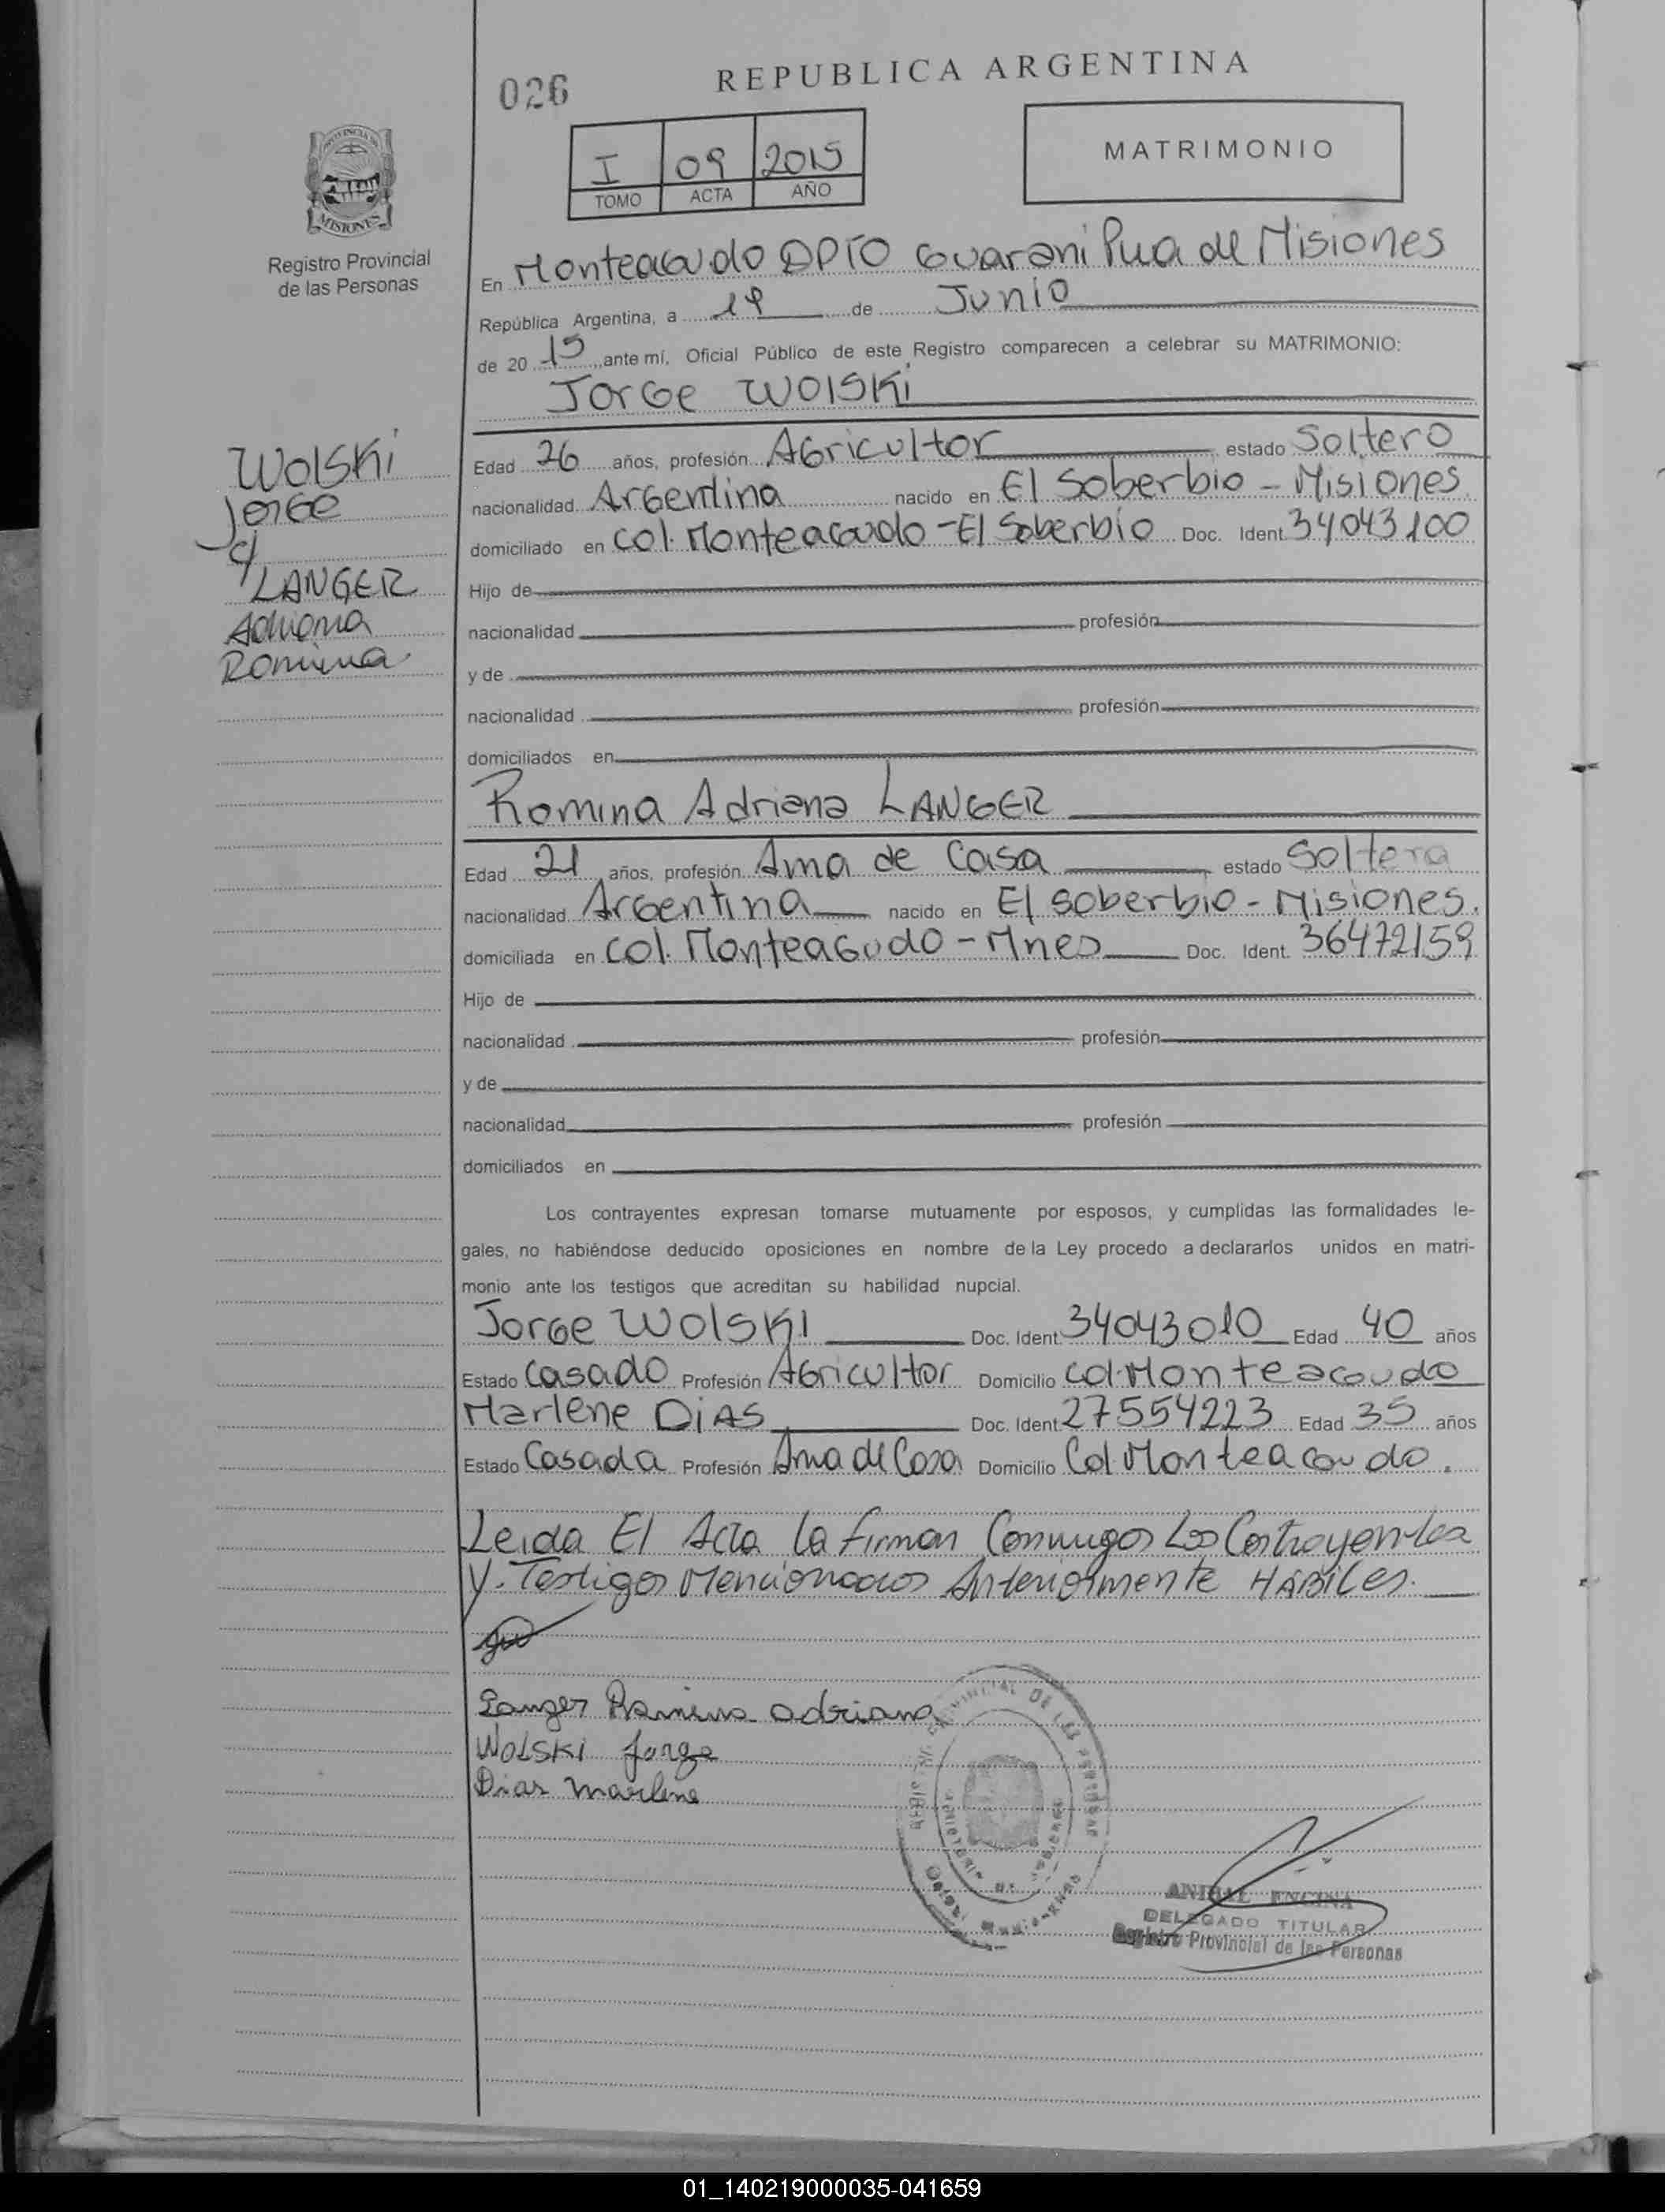 REPUBLICA ARGENTINA
026
MATRIMONIO
I 09 2015
TOMO ACTA AÑO
PROVINCIA DE
MISIONES
Registro Provincial
de las Personas
En Monteagudo DPTO Guarani Pcia de Misiones
República Argentina, a 19 de Junio
de 20 15 ante mí, Oficial Público de este Registro comparecen a celebrar su MATRIMONIO:
Jorge WOlSKi
Wolski
Jorge
c/
LANGER
Adriana
Romina
Edad 26 años, profesión Agricultor estado Soltero
nacionalidad Argentina nacido en El Soberbio - Misiones
domiciliado en Col. Monteagudo - El Soberbio Doc. Ident. 34043100
Hijo de
nacionalidad profesión
y de
nacionalidad profesión
domiciliados en
Romina Adriana LANGER
Edad 21 años, profesión Ama de Casa estado Soltera
nacionalidad Argentina nacido en El Soberbio - Misiones.
domiciliada en Col. Monteagudo - Mnes Doc. Ident. 36472159
Hijo de
nacionalidad profesión
y de
nacionalidad profesión
domiciliados en
Los contrayentes expresan tomarse mutuamente por esposos, y cumplidas las formalidades le-
gales, no habiéndose deducido oposiciones en nombre de la Ley procedo a declararlos unidos en matri-
monio ante los testigos que acreditan su habilidad nupcial.
Jorge WOlSKI Doc. Ident. 34043010 Edad 40 años
Estado Casado Profesión Agricultor Domicilio Col. Monteagudo
Marlene DiAS Doc. Ident. 27554223 Edad 35 años
Estado Casada Profesión Ama de Casa Domicilio Col Monteagudo.
Leida El Acta la firman Conmigo Los Contrayentes
y Testigos Mencionados Anteriormente HÁBiles.
Langer Romina adriana
WOLSKi Jorge
Dias marlene
ANIBAL ENCINA
DELEGADO TITULAR
Registro Provincial de las Personas
01_140219000035-041659